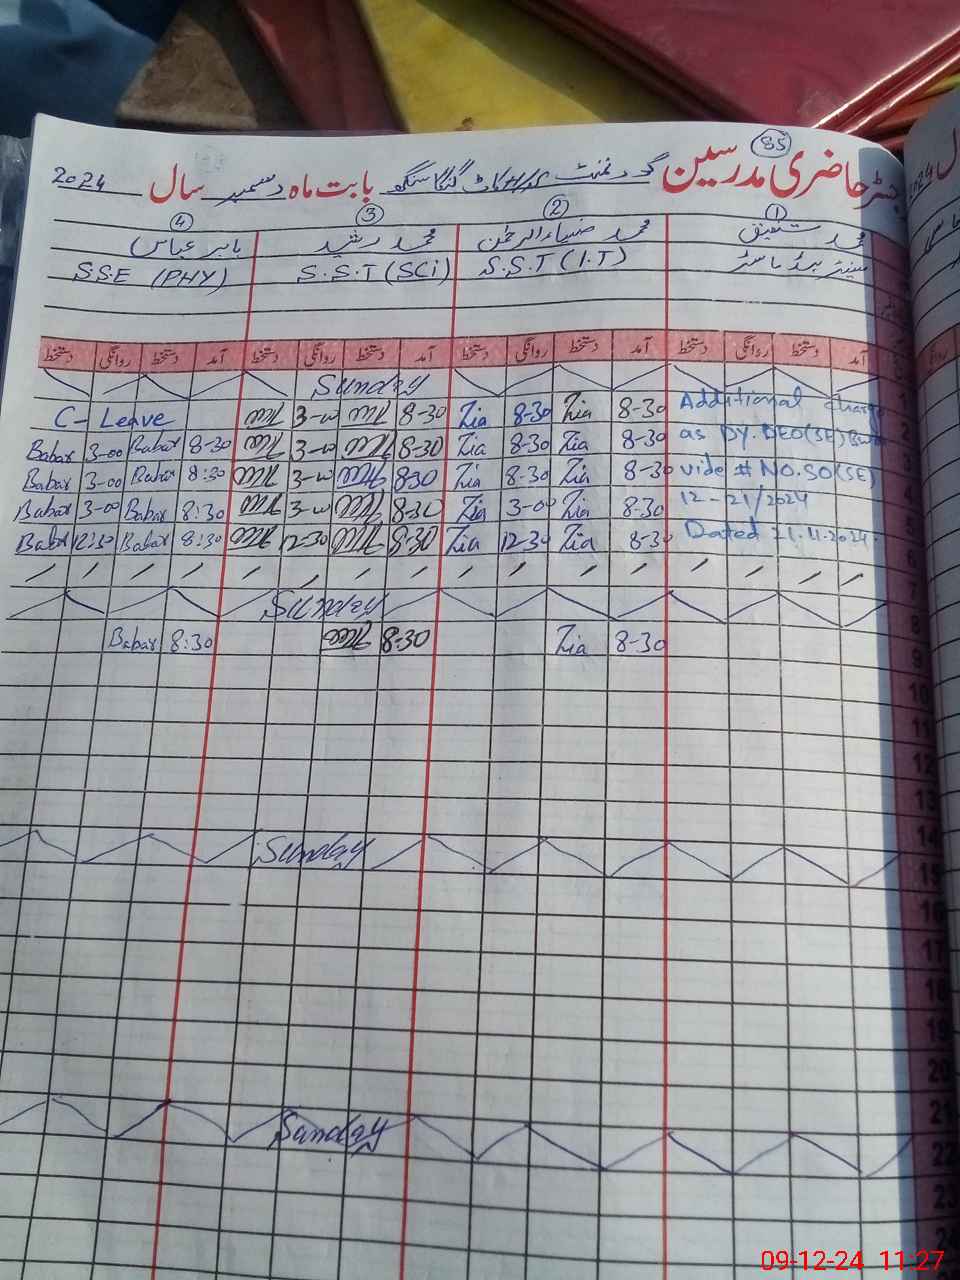 85
رجسٹر حاضری مدرسین گورنمنٹ گنگا سنگھ بابت ماہ دسمبر سال 2024
① ② ③ ④
محمد شفیق محمد ضیاء الرحمٰن محمد رشید بابر عباس
سینئر ہیڈ ماسٹر S.S.T (I.T) S.S.T (SCi) S.S.E (PHY)
آمد دستخط روانگی دستخط آمد دستخط روانگی دستخط آمد دستخط روانگی دستخط آمد دستخط روانگی دستخط
Sunday 1
C- Leave 3-00 8-30 Zia 8-30 Zia 8-30 Additional charge 2
Babar 3-00 Babar 8-30 3-00 8-30 Zia 8-30 Zia 8-30 as DY. DEO(SE) 3
Babar 3-00 Babar 8:30 3-00 8-30 Zia 8-30 Zia 8-30 vide # NO.SO(SE) 4
Babar 3-00 Babar 8:30 3-00 8-30 Zia 3-00 Zia 8-30 12-21/2024 5
Babar 12:30 Babar 8:30 12-30 8-30 Zia 12-30 Zia 8-30 Dated 21.11.2024 6
7
Sunday 8
Babar 8:30 8-30 Zia 8-30 9
10
11
12
13
14
Sunday 15
16
17
18
19
20
21
Sunday 22
23
09-12-24 11:27